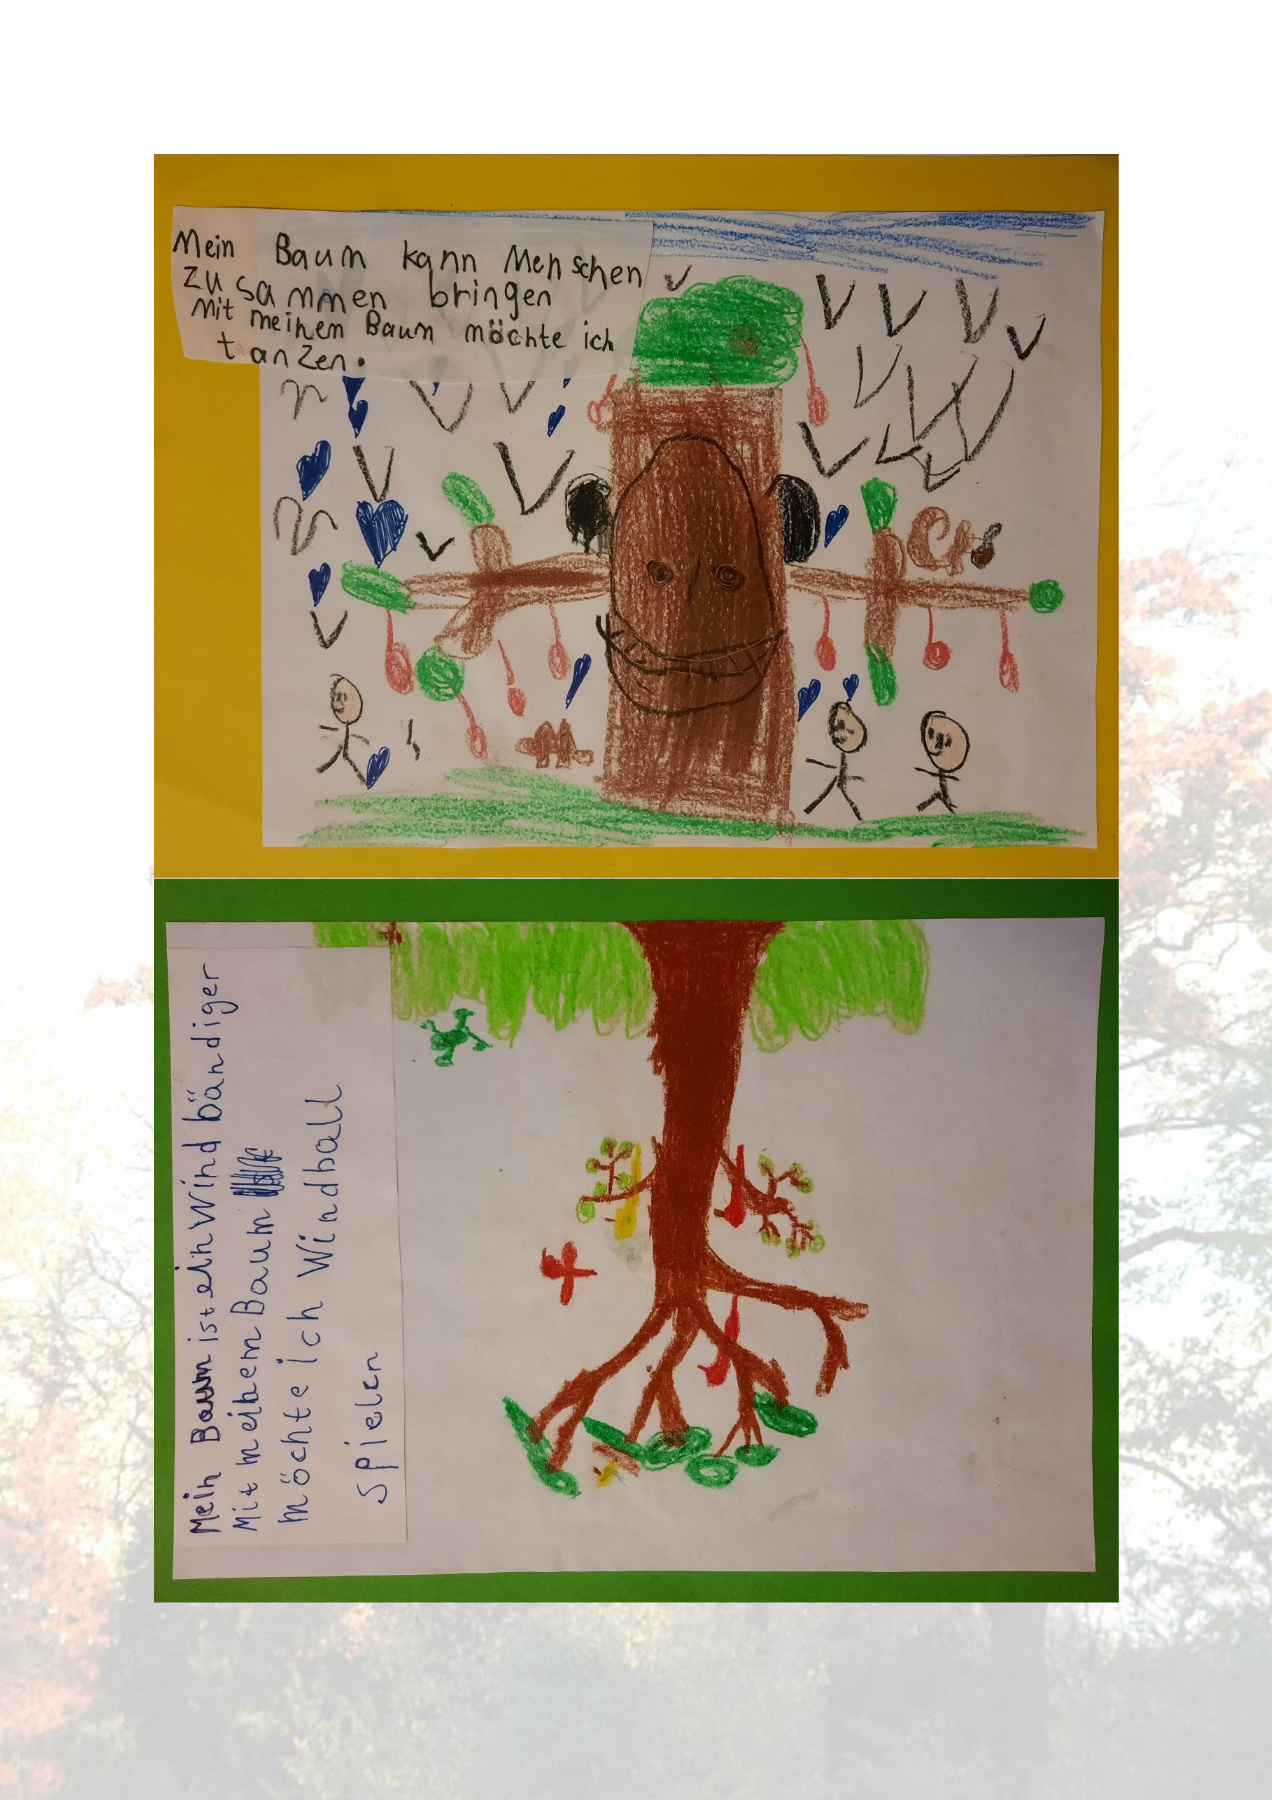 Mein Baum kann Menschen
zusammen bringen
Mit meinem Baum möchte ich
tanzen.
Mein Baum ist ein Wind bändiger
Mit meinem Baum
möchte ich Windball
spielen